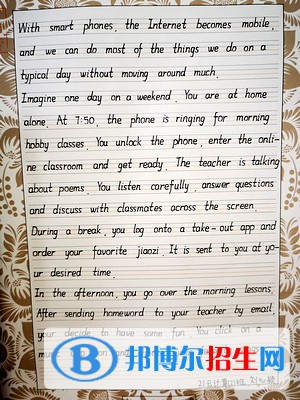 With smart phones, the Internet becomes mobile,
and we can do most of the things we do on a
typical day without moving around much.
Imagine one day on a weekend. You are at home
alone. At 7:50, the phone is ringing for morning
hobby classes. You unlock the phone, enter the onli-
ne classroom and get ready. The teacher is talking
about poems. You listen carefully, answer questions
and discuss with classmates across the screen.
During a break, you log onto a take-out app and
order your favorite jiaozi. It is sent to you at yo-
ur desired time.
In the afternoon, you go over the morning lessons.
After sending homeword to your teacher by email,
your decide to have some fun. You click on a
邦博尔招生网